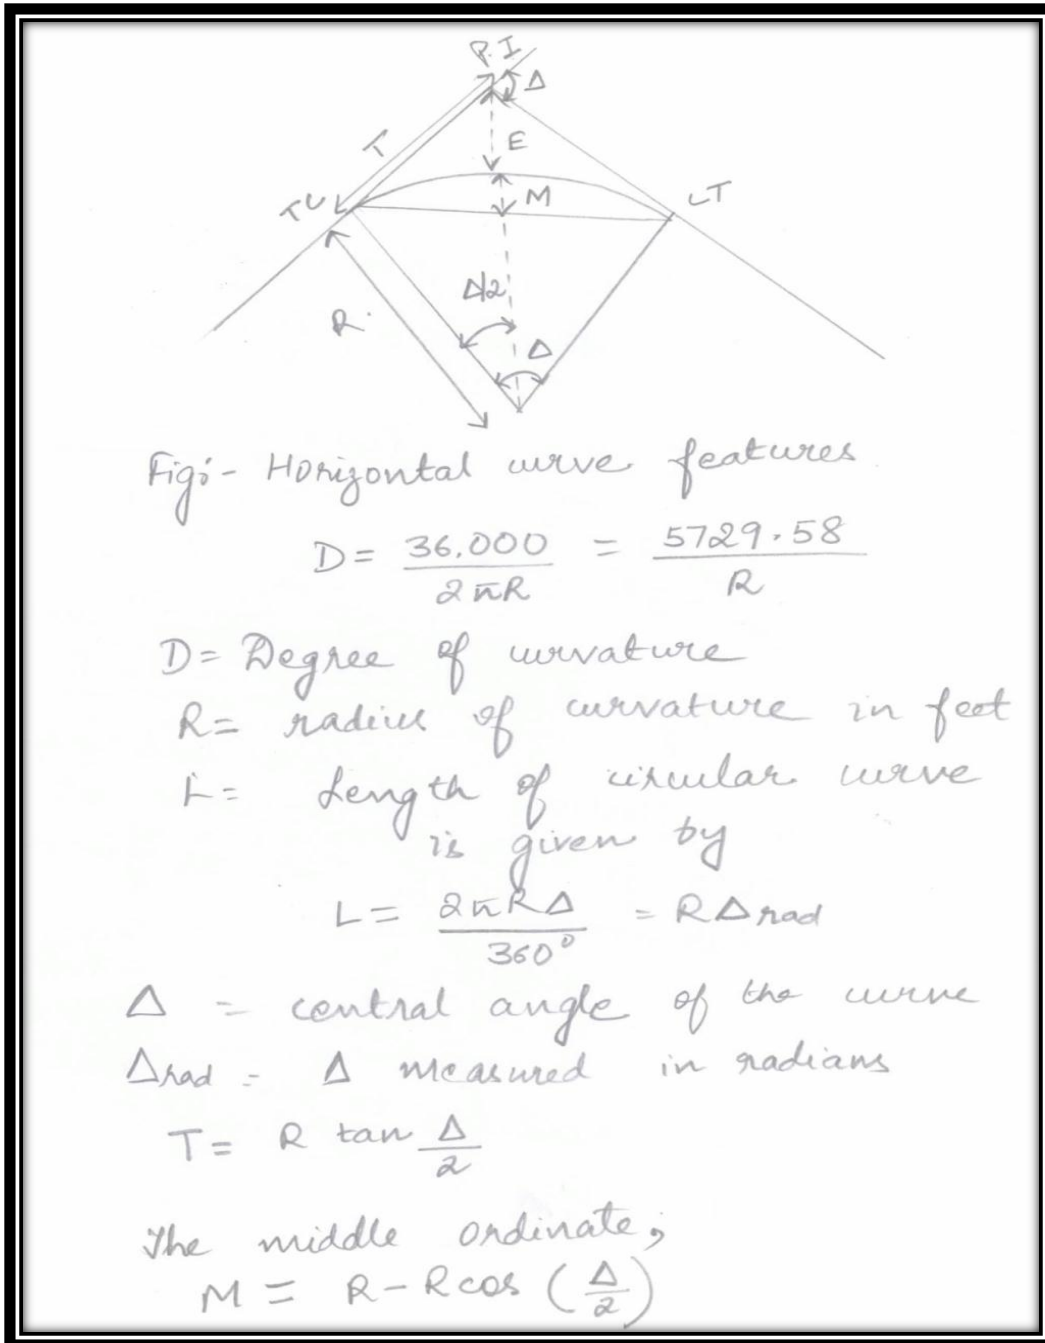 P.I
Δ
T
E
M
TC
CT
Δ/2
R
Δ
Fig:- Horizontal curve features
D = 36,000 / 2πR = 5729.58 / R
D = Degree of curvature
R = radius of curvature in feet
L = Length of circular curve
is given by
L = 2πRΔ / 360° = RΔrad
Δ = central angle of the curve
Δrad = Δ measured in radians
T = R tan Δ/2
The middle ordinate,
M = R - R cos (Δ/2)